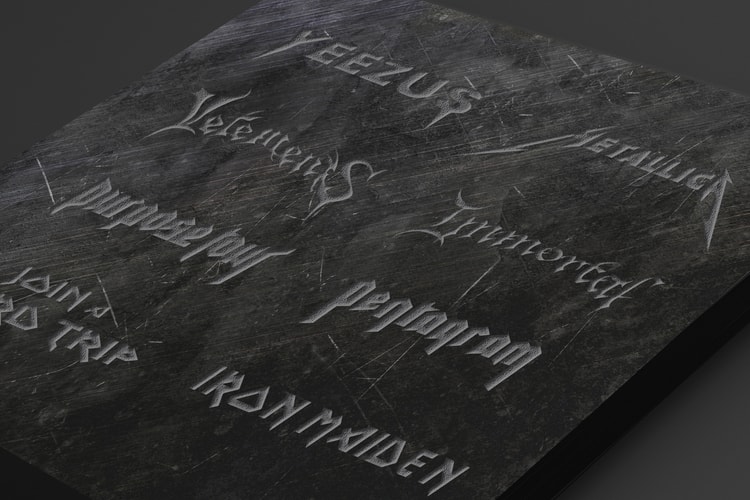 YEEZUS
METALLICA
Vetements
Immortal
purpose tour
pentagram
JOIN A
RD TRIP
IRON MAIDEN